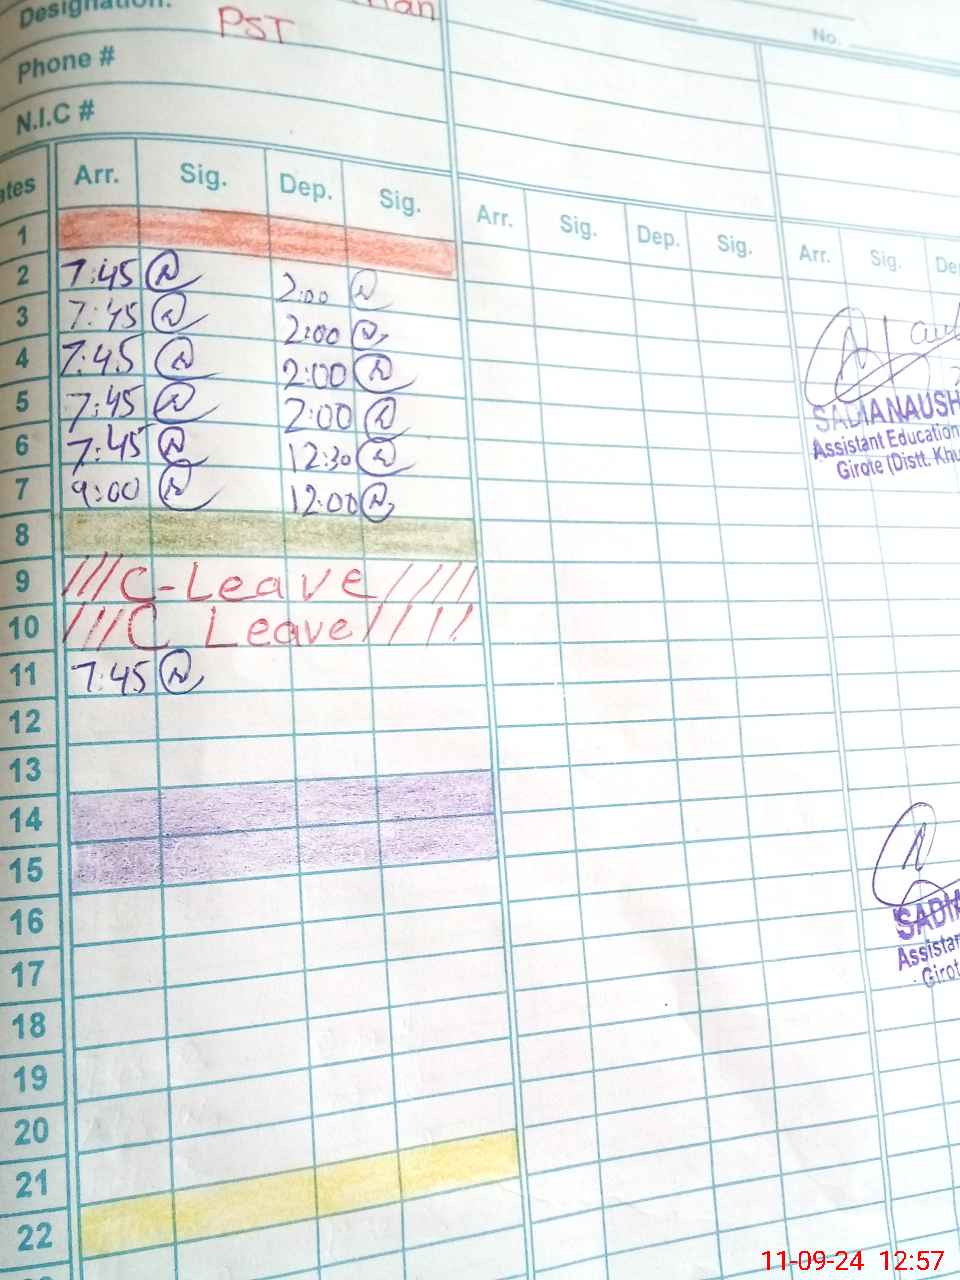 Designation:
PST
No.
Phone #
N.I.C #
Arr. Sig. Dep. Sig. Arr. Sig. Dep. Sig. Arr. Sig.
1
2 7:45 2:00
3 7:45 2:00
4 7:45 2:00
5 7:45 2:00
6 7:45 12:30
7 9:00 12:00
8
9 C-Leave
10 C Leave
11 7:45
12
13
14
15
16
17
18
19
20
21
22
SADIANAUSH
Assistant Education
Girote (Distt. Khu
SADIA
Assistan
Girot
11-09-24 12:57